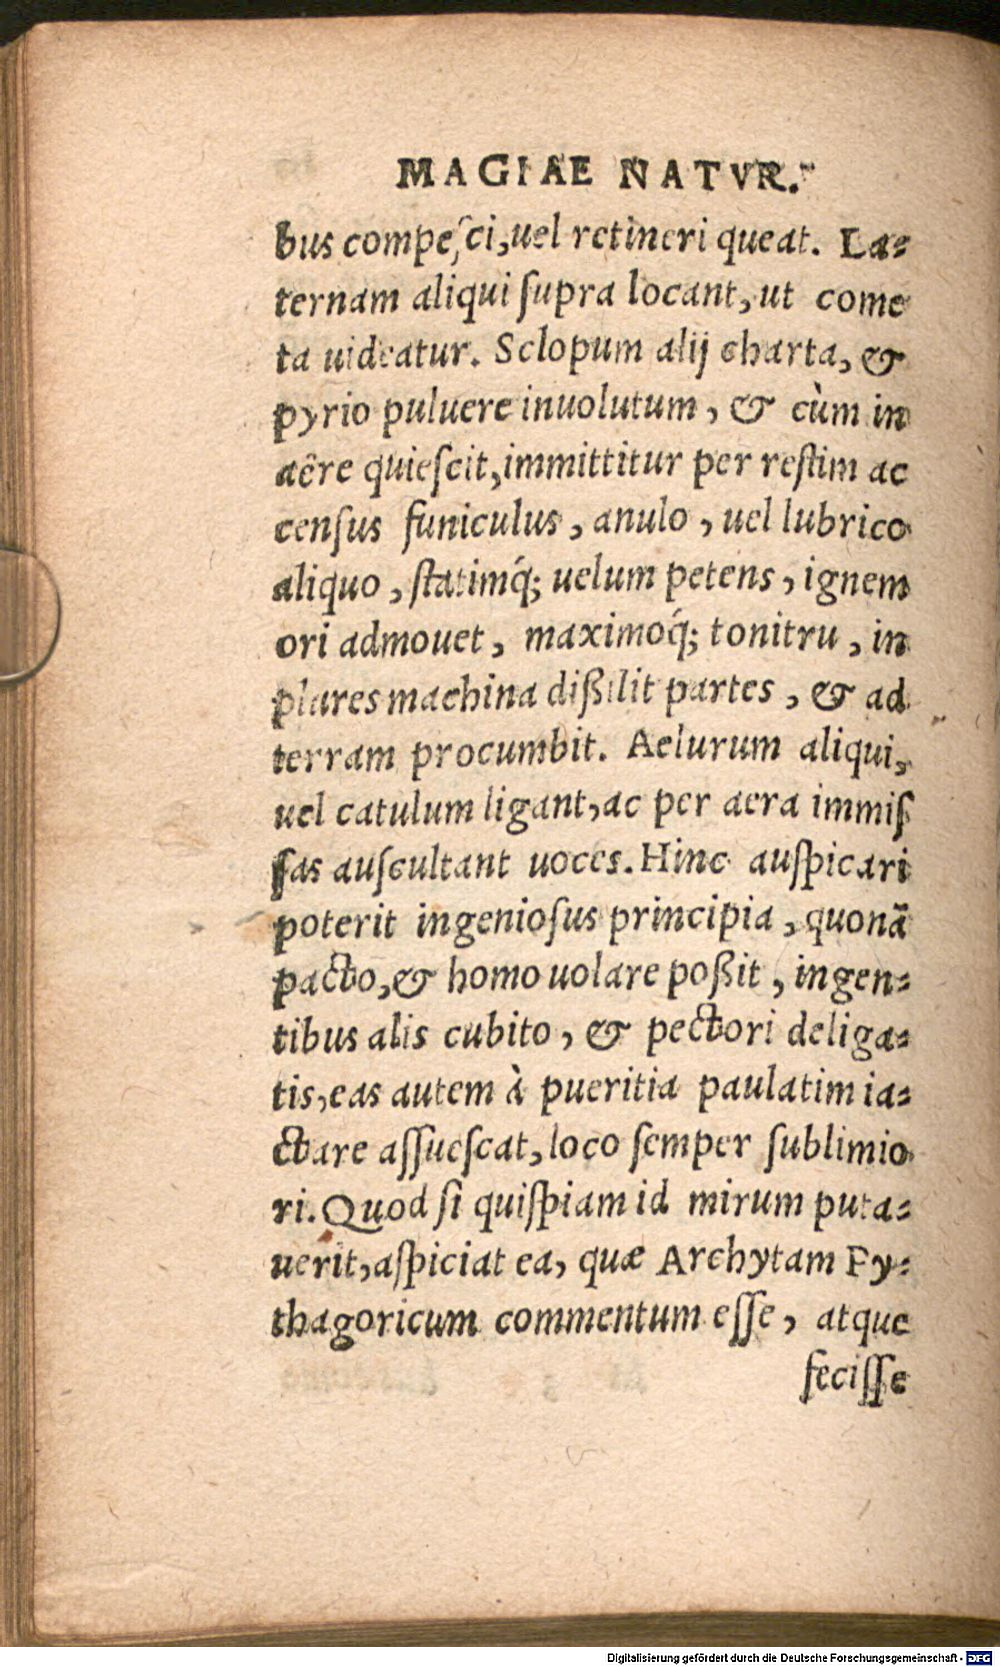 MAGIAE NATVR.
bus compesci, uel retineri queat. La-
ternam aliqui supra locant, ut come
ta uideatur. Sclopum alij charta, &
pyrio puluere inuolutum, & cùm in
aëre quiescit, immittitur per restim ac
census funiculus, anulo, uel lubrico
aliquo, statimq́; uelum petens, ignem
ori admouet, maximoq́; tonitru, in
plures machina dißilit partes, & ad
terram procumbit. Aelurum aliqui,
uel catulum ligant, ac per aera immiß
sas auscultant uoces. Hinc auspicari
poterit ingeniosus principia, quonã
pacto, & homo uolare poßit, ingen-
tibus alis cubito, & pectori deliga-
tis, eas autem à pueritia paulatim ia-
ctare assuescat, loco semper sublimio
ri. Quod si quispiam id mirum puta-
uerit, aspiciat ea, quæ Archytam Py-
thagoricum commentum esse, atque
fecisse
Digitalisierung gefördert durch die Deutsche Forschungsgemeinschaft - DFG